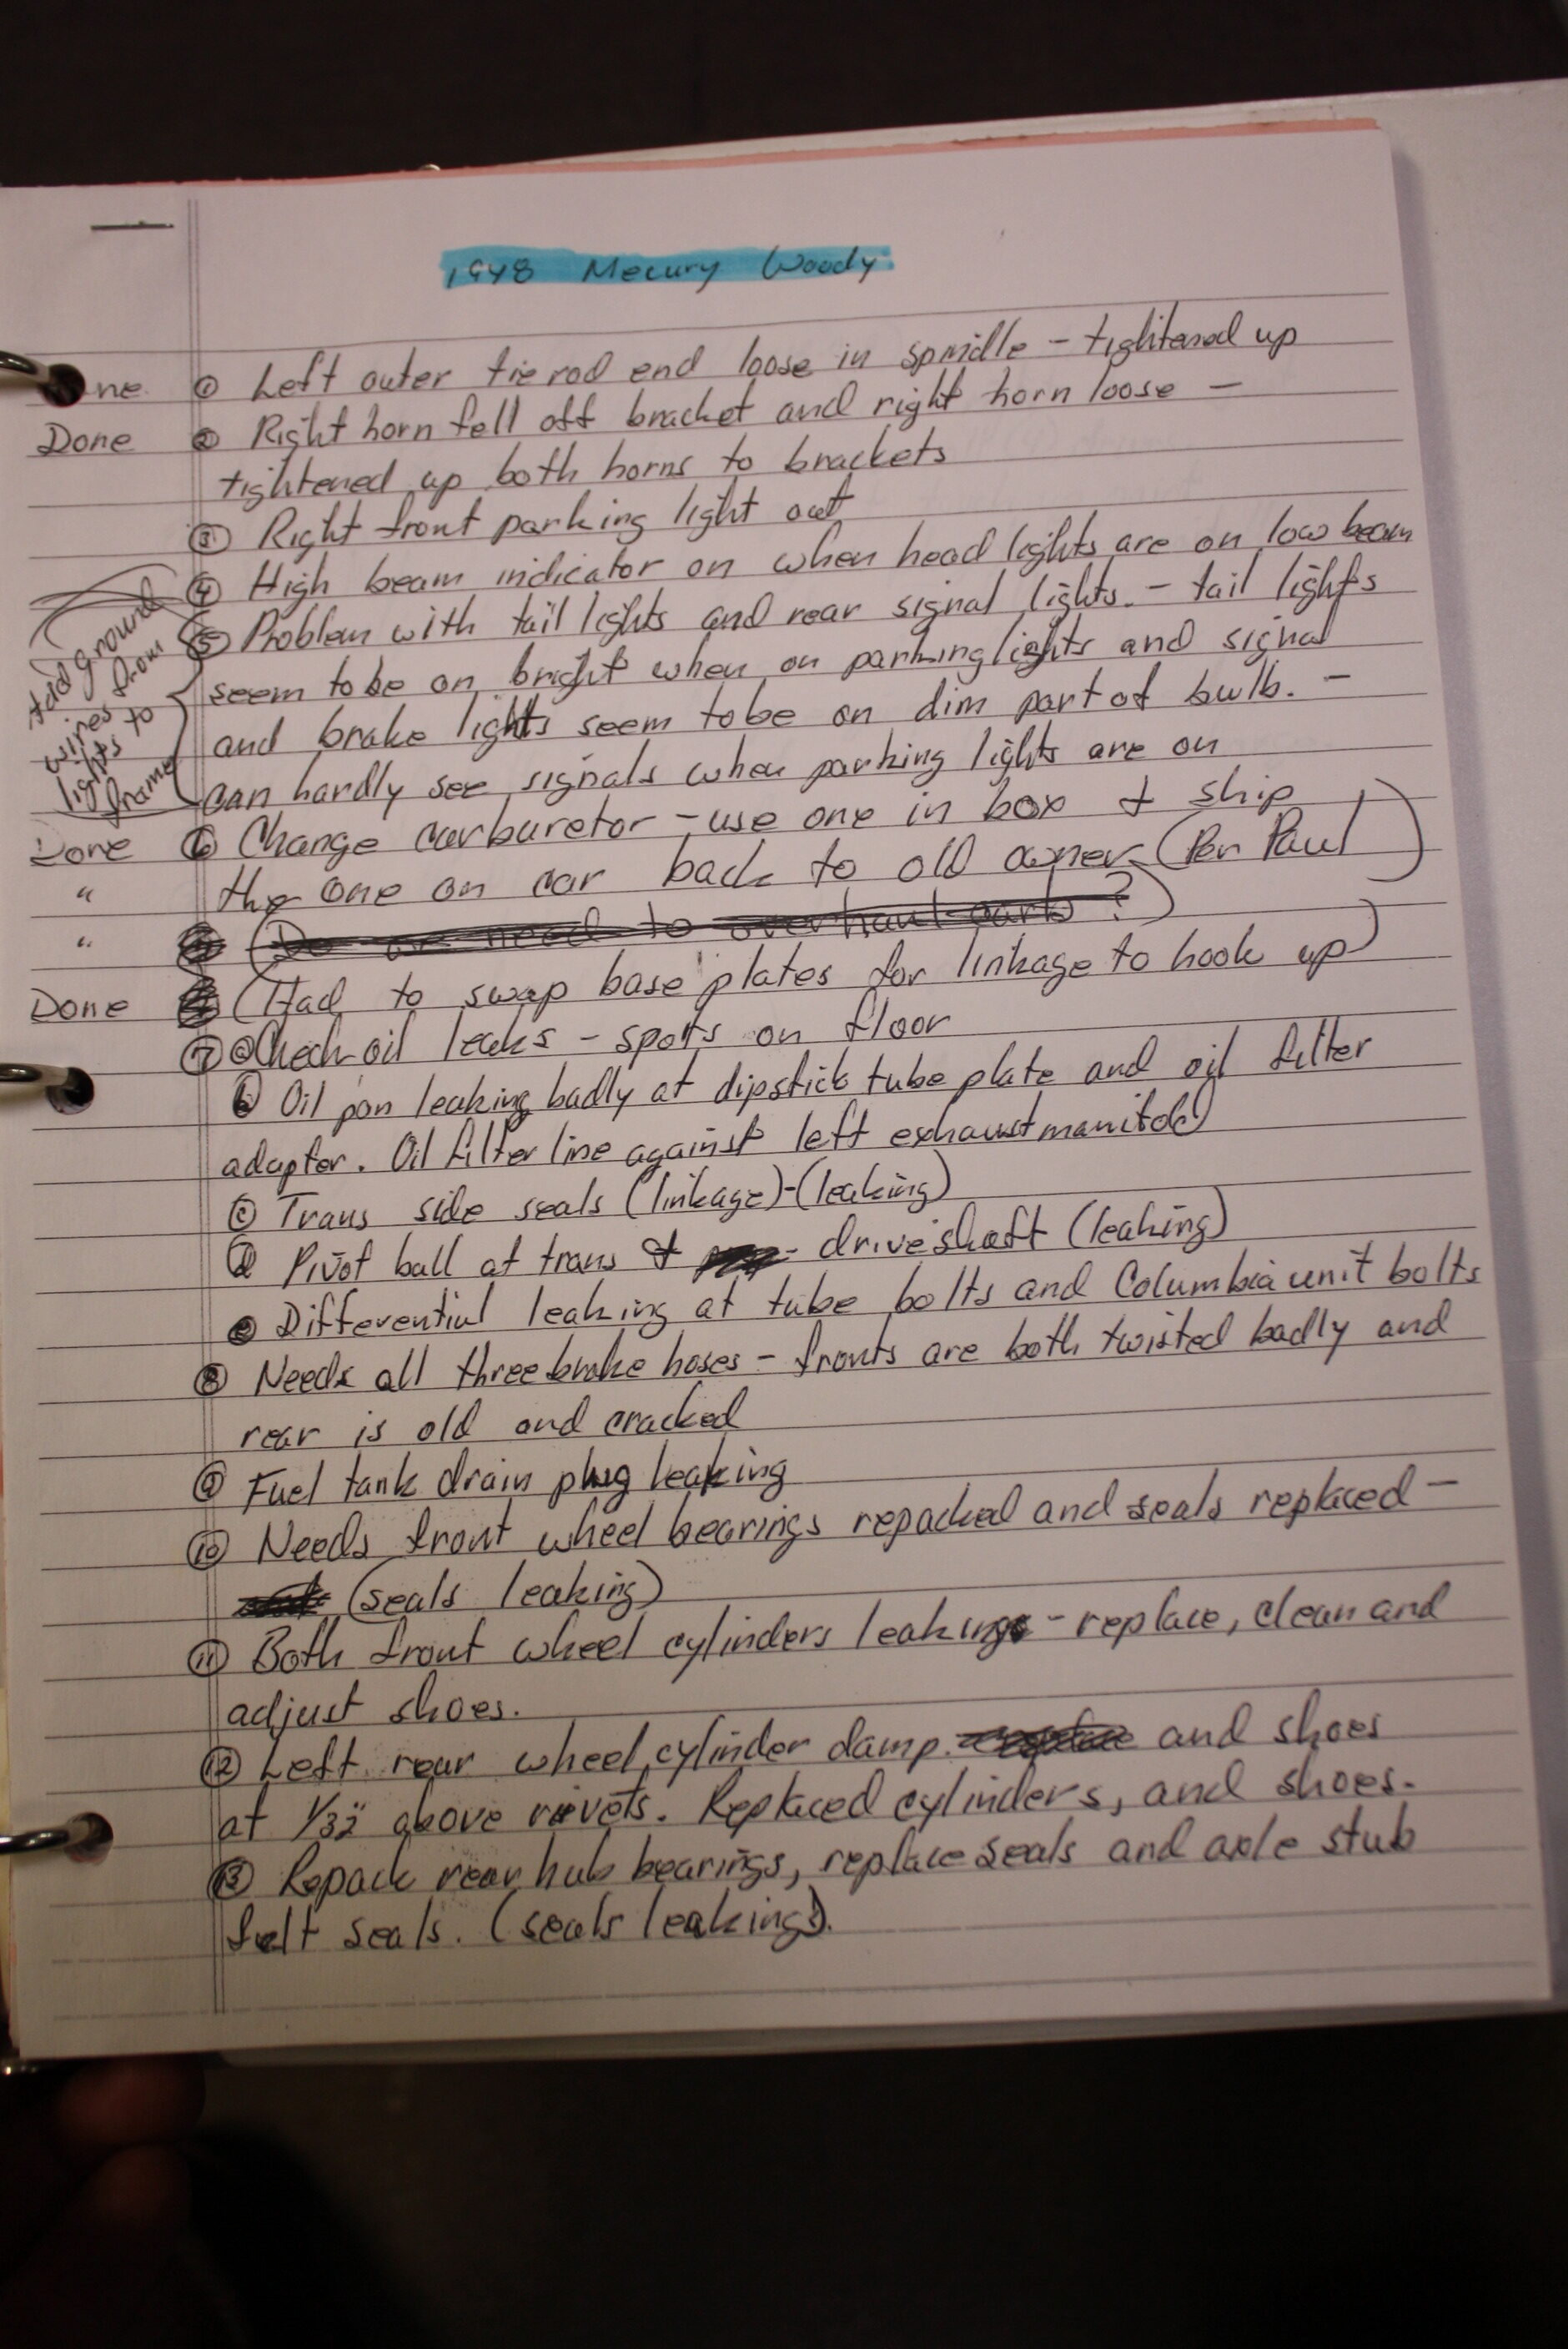 1948 Mecury Woody
ne ① Left outer tie rod end loose in spindle - tightened up
Done ② Right horn fell off bracket and right horn loose -
tightened up both horns to brackets
③ Right front parking light out
④ High beam indicator on when head lights are on low beam
⑤ Problem with tail lights and rear signal lights. - tail lights
seem to be on bright when on parking lights and signal
and brake lights seem to be on dim part of bulb. -
can hardly see signals when parking lights are on
Add ground
wires from
lights to
frame
Done ⑥ Change carburetor - use one in box & ship
" the one on car back to old owner (Per Paul)
" (Do we need to overhaul carb?)
Done (Had to swap base plates for linkage to hook up)
⑦ ⓐ Check oil leaks - spots on floor
ⓑ Oil pan leaking badly at dipstick tube plate and oil filter
adapter. Oil filter line against left exhaust manifold
ⓒ Trans side seals (linkage)-(leaking)
ⓓ Pivot ball at trans & - driveshaft (leaking)
ⓔ Differential leaking at tube bolts and Columbia unit bolts
⑧ Needs all three brake hoses - fronts are both twisted badly and
rear is old and cracked
⑨ Fuel tank drain plug leaking
⑩ Needs front wheel bearings repacked and seals replaced -
(seals leaking)
⑪ Both front wheel cylinders leaking - replace, clean and
adjust shoes.
⑫ Left rear wheel cylinder damp. and shoes
at 1/32" above rivets. Replaced cylinders, and shoes.
⑬ Repack rear hub bearings, replace seals and axle stub
felt seals. (seals leaking).